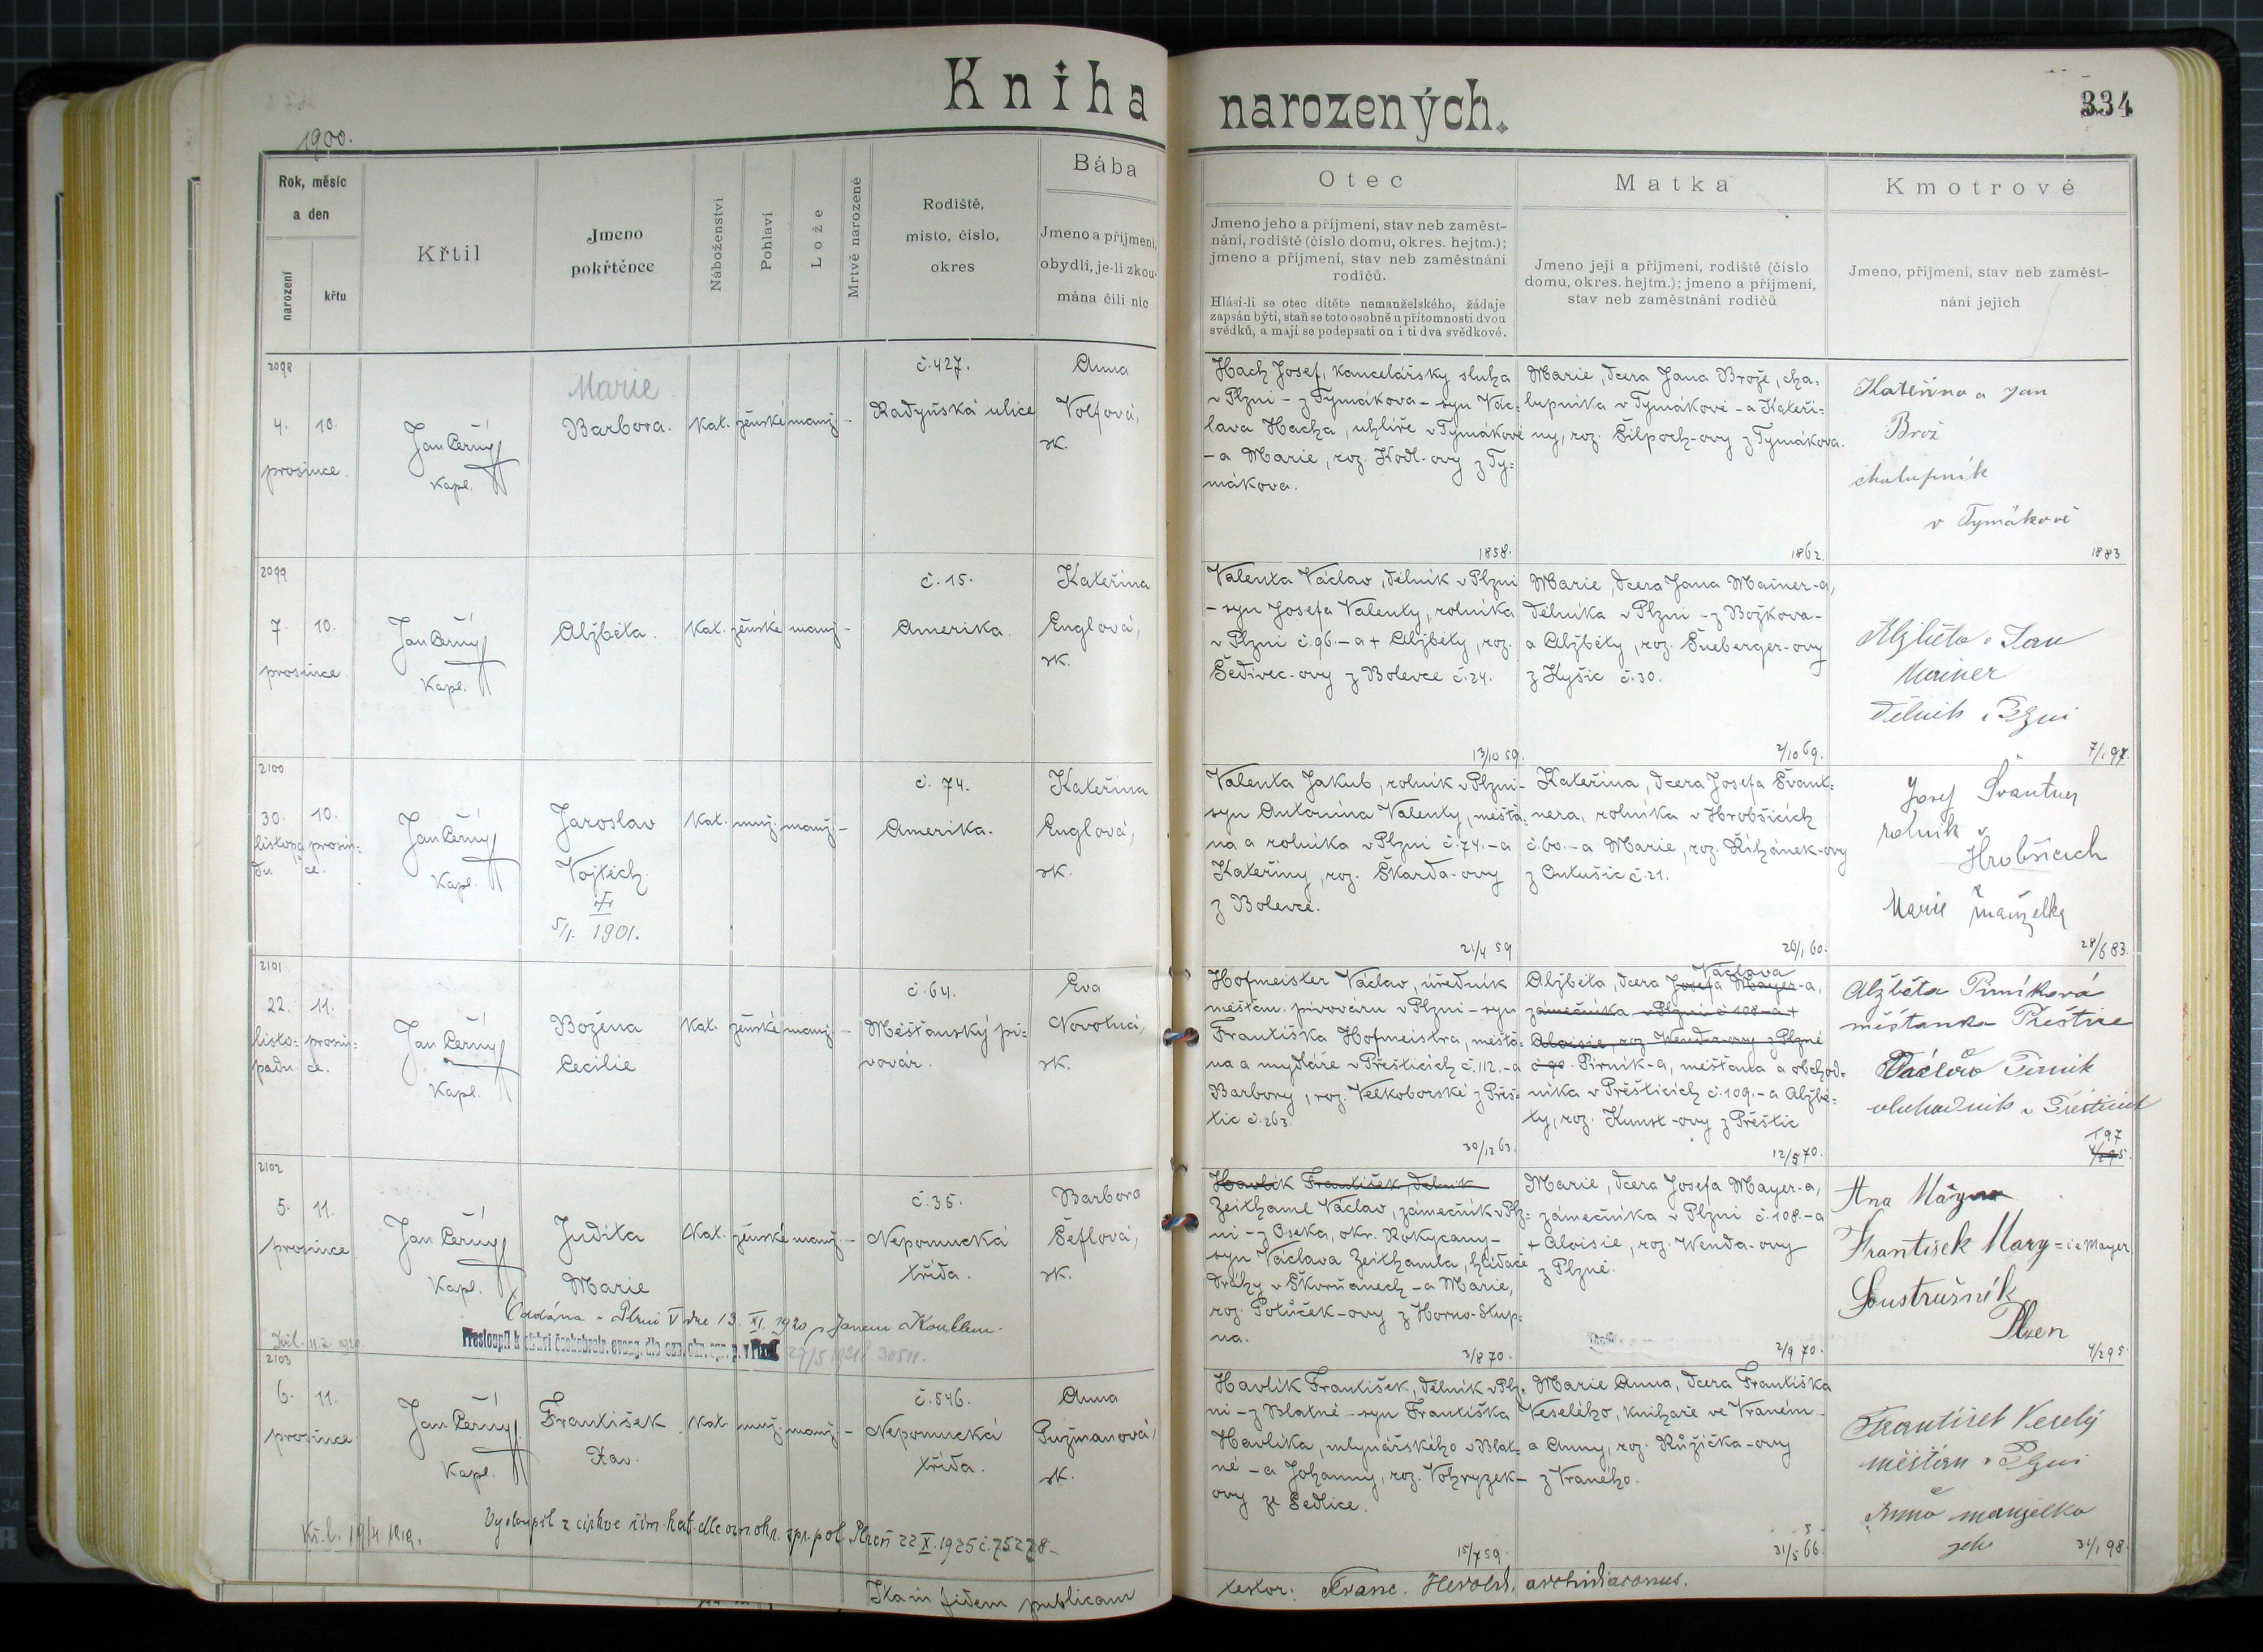 Kniha narozených.
334
1900.
Rok, měsíc
a den
narození
křtu
Křtil
Jmeno
pokřtěnce
Náboženství
Pohlaví
Lože
Mrtvě narozené
Rodiště,
místo, číslo,
okres
Bába
Jmeno a příjmení,
obydlí, je-li zkou-
mána čili nic
Otec
Jmeno jeho a příjmení, stav neb zaměst-
nání, rodiště (číslo domu, okres. hejtm.);
jmeno a příjmení, stav neb zaměstnání
rodičů.
Hlásí-li se otec dítěte nemanželského, žádaje
zapsán býti, staň se toto osobně u přítomnosti dvou
svědků, a mají se podepsati on i ti dva svědkové.
Matka
Jmeno její a příjmení, rodiště (číslo
domu, okres. hejtm.); jmeno a příjmení,
stav neb zaměstnání rodičů
Kmotrové
Jmeno, příjmení, stav neb zaměst-
nání jejich
2098
4. 10.
prosince.
Jan Černý
kapl.
Marie
Barbora.
kat. ženské manž. -
č. 427.
Radyňská ulice
Anna
Volfová,
zk.
Hach Josef, kancelářský sluha
v Plzni - z Tymákova - syn Vác-
lava Hacha, uhlíře v Tymákově
- a Marie, roz. Kodl-ovy z Ty-
mákova.
1858.
Marie, dcera Jana Brože, cha-
lupníka v Tymákově - a Kateři-
ny, roz. Šilpoch-ovy z Tymákova.
1862.
Kateřina a Jan
Brož
chalupník
v Tymákově
1883
2099
7. 10.
prosince
Jan Černý
kapl.
Alžběta.
kat. ženské manž. -
č. 15.
Amerika.
Kateřina
Englová,
zk.
Valenta Václav, dělník v Plzni
- syn Josefa Valenty, rolníka
v Plzni č. 96 - a + Alžběty, roz.
Šedivec-ovy z Bolevce č. 24.
13/10 59.
Marie, dcera Jana Mainer-a,
dělníka v Plzni - z Božkova -
a Alžběty, roz. Šneberger-ovy
z Kyšic č. 30.
2/10 69.
Alžběta a Jan
Mainer
dělník v Plzni
7/1 97.
2100
30. 10.
listopa prosin-
du ce.
Jan Černý
kapl.
Jaroslav
Vojtěch
5/1. 1901.
kat. muž. manž. -
č. 74.
Amerika.
Kateřina
Englová,
zk.
Valenta Jakub, rolník v Plzni -
syn Antonína Valenty, měšťa-
na a rolníka v Plzni č. 74. - a
Kateřiny, roz. Škarda-ovy
z Bolevce.
21/4 59
Kateřina, dcera Josefa Švant-
nera, rolníka v Hrobšicích
č. 60. - a Marie, roz. Řihánek-ovy
z Ontušic č. 21.
26/1 60.
Josef Švantner
rolník v
Hrobšicích
Marie manželka
28/6 83.
2101
22. 11.
listo- prosin-
padu ce.
Jan Černý
kapl.
Božena
Cecilie
kat. ženské manž. -
č. 64.
Měšťanský pi-
vovár.
Eva
Novotná,
zk.
Hofmeister Václav, úředník
měšťan. pivováru v Plzni - syn
Františka Hofmeistra, měšťa-
na a mydláře v Přešticích č. 112. - a
Barbory, roz. Velkoborské z Přeš-
tic č. 263.
30/12 63.
Václava
Alžběta, dcera Josefa Mayer-a,
zámečníka v Plzni č 108 - a +
Aloisie, roz. Wenda-ovy z Plzně
č 90. Pirník-a, měšťana a obchod-
níka v Přešticích č. 109. - a Alžbě-
ty, roz. Kunst-ovy z Přeštic
12/5 70.
Alžběta Pirníková
měšťanka Přeštice
Václav Pirník
obchodník v Přešticích
197
4/2 95.
2102
5. 11.
prosince
Jan Černý
kapl.
Judita
Marie
kat. ženské manž. -
č. 35.
Nepomucká
třída.
Barbora
Šeflová,
zk.
Havlík František, dělník
Zeithaml Václav, zámečník v Plz-
ni - z Oseka, okr. Rokycany -
syn Václava Zeithamla, hlídače
dráhy v Škvrňanech - a Marie,
roz. Potůček-ovy z Horno-Slup-
na.
3/8 70.
Marie, dcera Josefa Mayer-a,
zámečníka v Plzni č. 108. - a
+ Aloisie, roz. Wenda-ovy
z Plzně.
2/9 70.
František Mary = i.e Mayer
Soustružník
Plzen
4/2 95.
Oddána v Plzni V dne 13. XI. 1920 s Janem Koublem.
Přestoupil k církvi českobratr. evang. dle ozn. okr. spr. p. v Plzni 27/5 1921
2103
6. 11.
prosince
Jan Černý
kapl.
František
Xav.
kat. muž. manž. -
č. 546.
Nepomucká
třída.
Anna
Pužmanová,
zk.
Havlík František, dělník v Plz-
ni - z Blatné - syn Františka
Havlíka, mlynářského v Blat-
né - a Johanny, roz. Vohryzek-
ovy ze Sedlice.
15/7 59.
Marie Anna, dcera Františka
Veselého, knihaře ve Vraném -
a Anny, roz. Růžička-ovy
z Vraného.
31/5 66.
František Veselý
měšťan v Plzni
Anna manželka
jeho
31/1 98.
Vystoupil z církve řím. kat. dle ozn. okr. spr. pol. Plzeň 22.X.1925 č. 75278 -
Ita in fidem publicam
testor: Franc. Herold, archidiaconus.